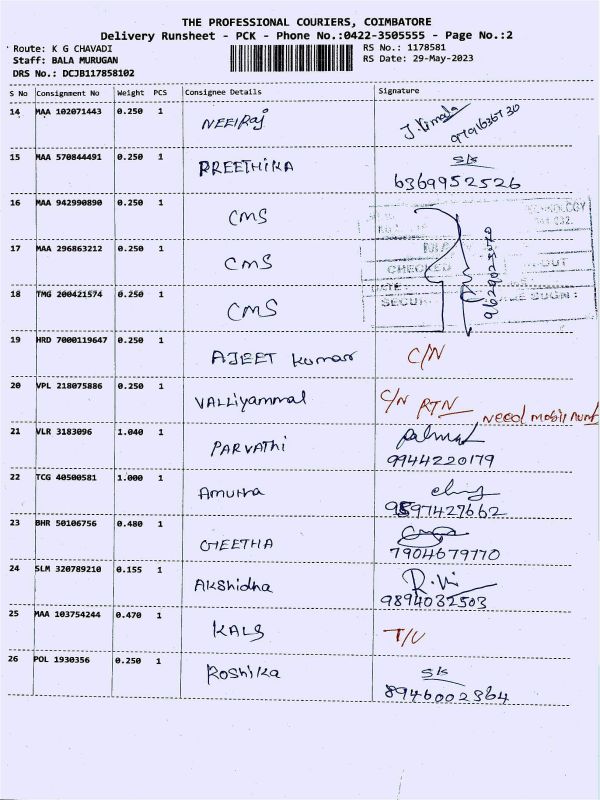 THE PROFESSIONAL COURIERS, COIMBATORE
Delivery Runsheet - PCK - Phone No.:0422-3505555 - Page No.:2
Route: K G CHAVADI
RS No.: 1178581
Staff: BALA MURUGAN
RS Date: 29-May-2023
DRS No.: DCJB117858102
S No Consignment No Weight PCS Consignee Details Signature
14 MAA 102071443 0.250 1 NEEIRAJ J. Vimala
15 MAA 570844491 0.250 1 PREETHIKA S/S
6369952526
16 MAA 942990890 0.250 1 CMS
17 MAA 296863212 0.250 1 CMS
CHECKED OUT
18 TMG 200421574 0.250 1 CMS
19 HRD 7000119647 0.250 1 AJEET Kumar C/N
20 VPL 218075886 0.250 1 VALLiyammal C/N RTN need mobil num
21 VLR 3183096 1.040 1 PARVATHi
9944220179
22 TCG 40500581 1.000 1 Amutha
9597427662
23 BHR 50106756 0.480 1 GEETHA
7904679770
24 SLM 320789210 0.155 1 AKshidha
9894032503
25 MAA 103754244 0.470 1 KALS T/U
26 POL 1930356 0.250 1 Roshika S/S
8946002364